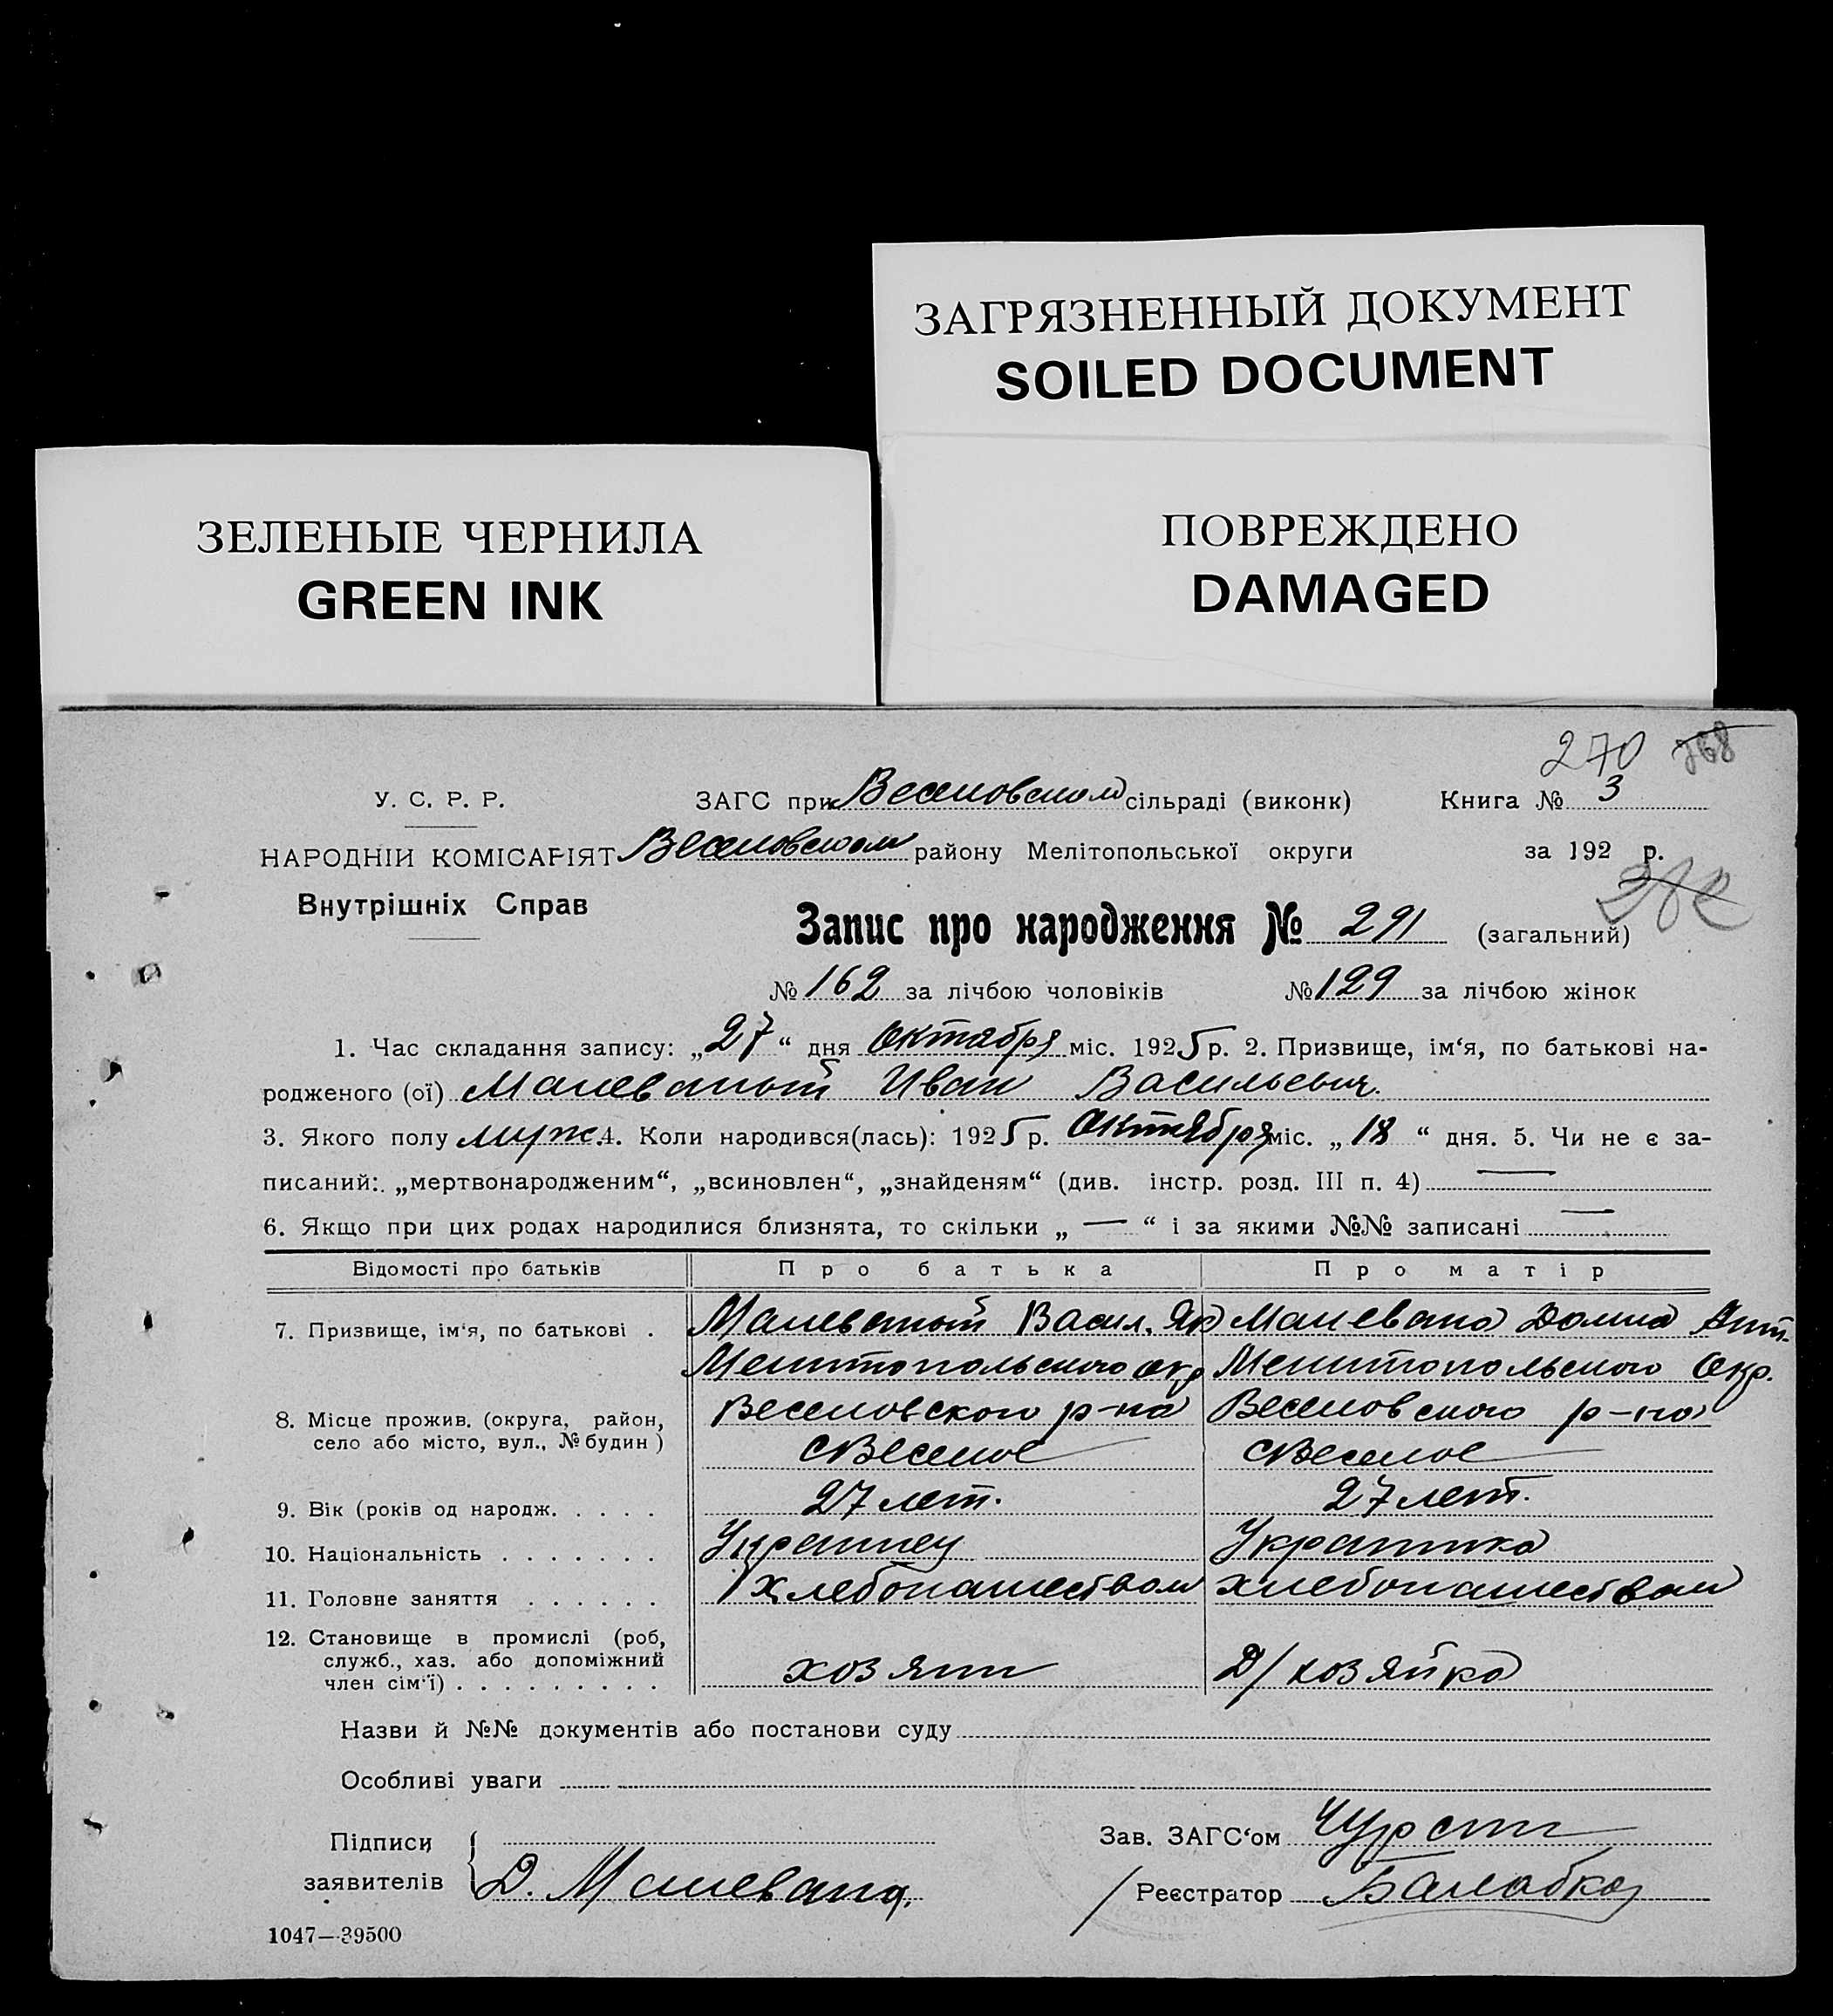 ЗАГРЯЗНЕННЫЙ ДОКУМЕНТ
SOILED DOCUMENT
ЗЕЛЕНЫЕ ЧЕРНИЛА
GREEN INK
ПОВРЕЖДЕНО
DAMAGED
270 268
У. С. Р. Р. ЗАГС при Веселовском сільраді (виконк) Книга № 3
НАРОДНІЙ КОМІСАРІЯТ Веселовском району Мелітопольської округи за 192 р.
Внутрішніх Справ
Запис про народження № 291 (загальний)
№ 162 за лічбою чоловіків № 129 за лічбою жінок
1. Час складання запису: „27“ дня Октября міс. 1925 р. 2. Призвище, ім‘я, по батькові на-
родженого (ої) Малеваный Иван Васильевич.
3. Якого полу муж. 4. Коли народився(лась): 1925 р. Октября міс. „18“ дня. 5. Чи не є за-
писаний: „мертвонародженим“, „всиновлен“, „знайденям“ (див. інстр. розд. III п. 4) —
6. Якщо при цих родах народилися близнята, то скільки „—“ і за якими №№ записані —
Відомості про батьків Про батька Про матір
7. Призвище, ім‘я, по батькові . Малеваный Васил. Як Малевана Домна Ант.
Мелитопольского окр Мелитопольского Окр.
8. Місце прожив. (округа, район, Веселовского р-на Веселовского р-на
село або місто, вул., № будин) с Веселое с Веселое
9. Вік (років од народж. . . . . 27 лет. 27 лет.
10. Національність . . . . . . . Украинец Украинка
11. Головне заняття . . . . . . хлебопашеством хлебопашеством
12. Становище в промислі (роб,
служб., хаз. або допоміжний хозяин Д/хозяйка
член сім‘ї) . . . . . . . . .
Назви й №№ документів або постанови суду
Особливі уваги
Підписи Зав. ЗАГС‘ом
заявителів Д. Малевана. Реєстратор Балабка
1047—39500